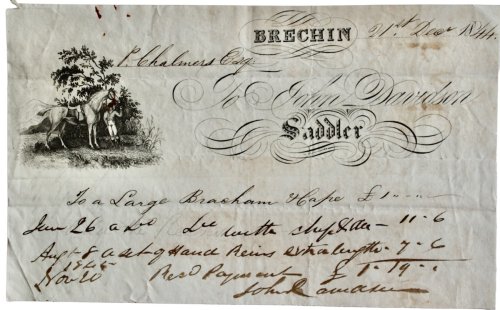 BRECHIN 21st Decr 1844.
P. Chalmers Esqr
To John Davidson
Saddler
To a Large Bracham & Cape £1 " - "
Jun 26 a Do Do with 11 - 6
Augt 8 A Set of Hand Reins extra length 7 - 6
Nov 20 Recd Payment £1 - 19 - "
John Davidson